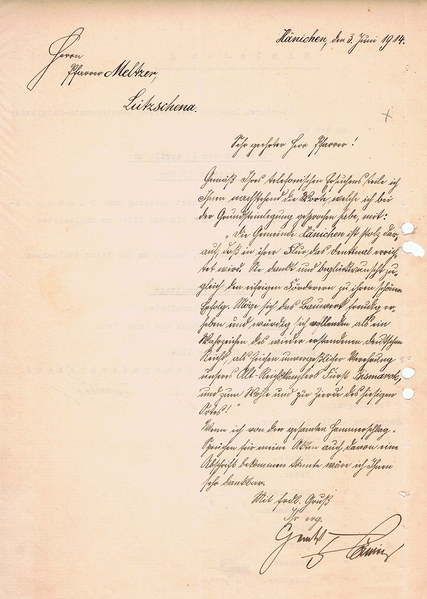 Hänichen, den 3. Juni 1914.
Herrn
Pfarrer Meltzer,
Lützschena.
Sehr geehrter Herr Pfarrer!
Gemäß Ihres telefonischen Ersuchens teile ich
Ihnen nachstehend die Worte, welche ich bei
der Grundsteinlegung gesprochen habe, mit:
„Die Gemeinde Hänichen ist stolz dar-
auf, daß in ihrer Flur das Denkmal errich-
tet wird. Sie dankt und beglückwünscht zu-
gleich den eifrigen Förderern zu ihrem schönen
Erfolge. Möge sich das Bauwerk freudig er-
heben und würdig sich vollenden als ein
Wahrzeichen des wieder erstandenen deutschen
Reichs, als Zeichen unvergeßlicher Verehrung
unseres Alt-Reichskanzlers Fürst Bismarck,
und zum Wohle und zur Zierde des hiesigen
Ortes!"
Wenn ich von den gesamten Hammerschlag-
Sprüchen für meine Akten auch davon eine
Abschrift bekommen könnte, wäre ich Ihnen
sehr dankbar.
Mit frdl. Gruß
Ihr erg.